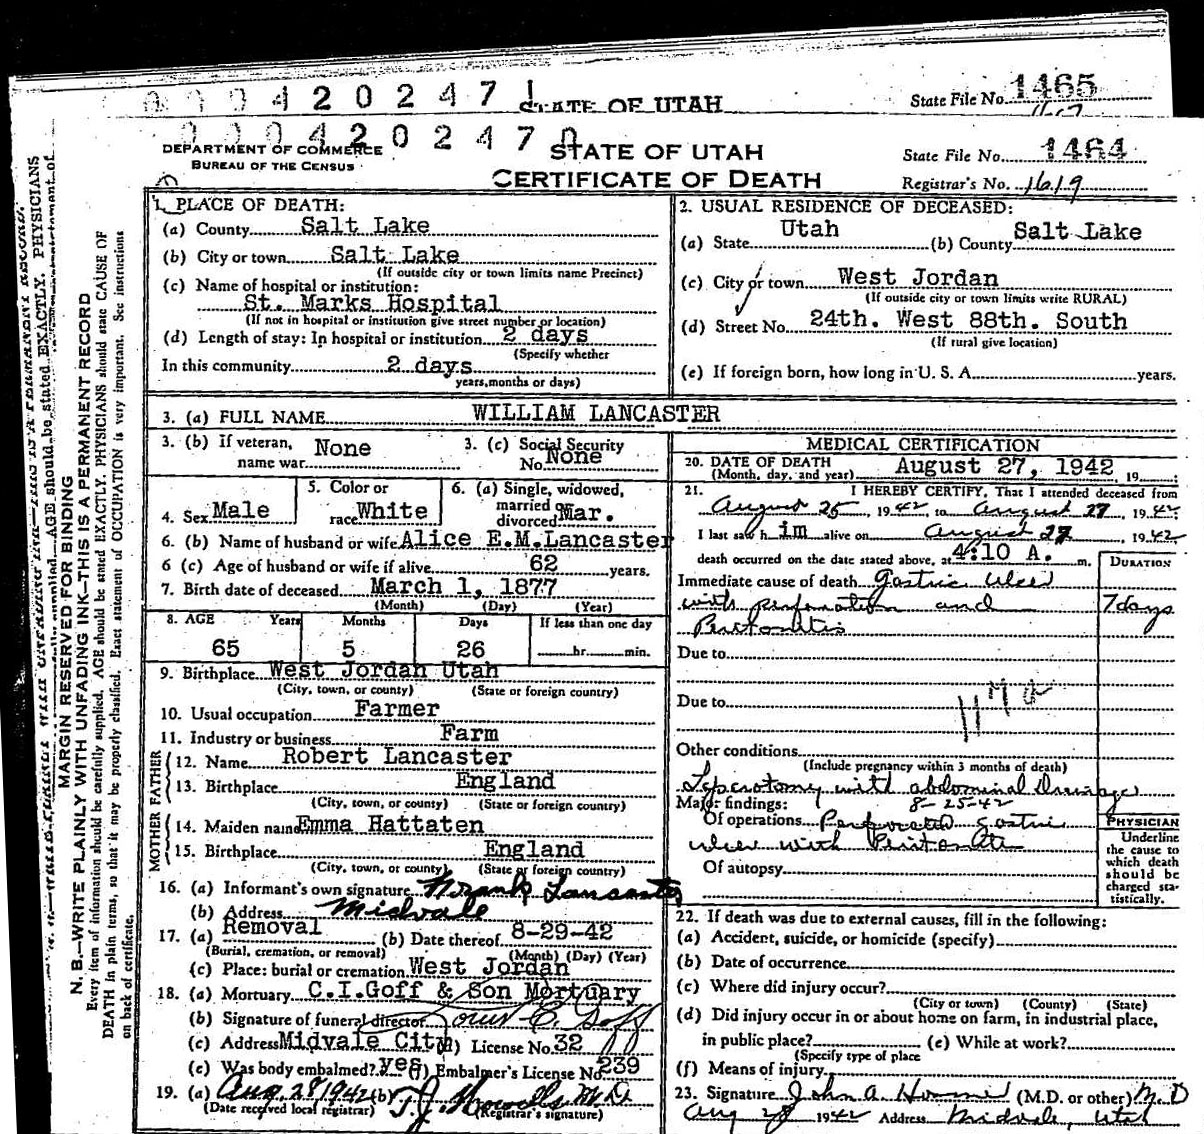 0004202471 STATE OF UTAH State File No. 1465
000420247 STATE OF UTAH State File No. 1464
DEPARTMENT OF COMMERCE
BUREAU OF THE CENSUS
CERTIFICATE OF DEATH Registrar's No. 1619
MARGIN RESERVED FOR BINDING
N. B.—WRITE PLAINLY WITH UNFADING INK—THIS IS A PERMANENT RECORD
Every item of information should be carefully supplied. AGE should be stated EXACTLY. PHYSICIANS should state CAUSE OF
DEATH in plain terms, so that it may be properly classified. Exact statement of OCCUPATION is very important. See instructions
on back of certificate.
1. PLACE OF DEATH:
(a) County Salt Lake
(b) City or town Salt Lake
(If outside city or town limits name Precinct)
(c) Name of hospital or institution:
St. Marks Hospital
(If not in hospital or institution give street number or location)
(d) Length of stay: In hospital or institution 2 days
(Specify whether
In this community 2 days
years, months or days)
2. USUAL RESIDENCE OF DECEASED:
(a) State Utah (b) County Salt Lake
(c) City or town West Jordan
(If outside city or town limits write RURAL)
(d) Street No. 24th. West 88th. South
(If rural give location)
(e) If foreign born, how long in U. S. A. years.
3. (a) FULL NAME WILLIAM LANCASTER
3. (b) If veteran, name war None
3. (c) Social Security No. None
4. Sex Male
5. Color or race White
6. (a) Single, widowed, married divorced Mar.
6. (b) Name of husband or wife Alice E.M.Lancaster
6 (c) Age of husband or wife if alive 62 years.
7. Birth date of deceased March 1, 1877
(Month) (Day) (Year)
8. AGE Years Months Days If less than one day
65 5 26 hr. min.
9. Birthplace West Jordan Utah
(City, town, or county) (State or foreign country)
10. Usual occupation Farmer
11. Industry or business Farm
FATHER
12. Name Robert Lancaster
13. Birthplace England
(City, town, or county) (State or foreign country)
MOTHER
14. Maiden name Emma Hattaten
15. Birthplace England
(City, town, or county) (State or foreign country)
16. (a) Informant's own signature Frank Lancaster
(b) Address Midvale
17. (a) Removal (b) Date thereof 8-29-42
(Burial, cremation, or removal) (Month) (Day) (Year)
(c) Place: burial or cremation West Jordan
18. (a) Mortuary C.I.Goff & Son Mortuary
(b) Signature of funeral director Goff
(c) Address Midvale City License No. 32
(e) Was body embalmed? yes (f) Embalmer's License No. 239
19. (a) Aug. 28 1942 (b) M.D.
(Date received local registrar) (Registrar's signature)
MEDICAL CERTIFICATION
20. DATE OF DEATH August 27, 1942 19
(Month, day, and year)
21. I HEREBY CERTIFY, That I attended deceased from
August 25, 1942, to August 27, 1942
I last saw h im alive on August 27 1942
death occurred on the date stated above, at 4:10 A. m.
DURATION
Immediate cause of death Gastric ulcer
with perforation and 7 days
Peritonitis
Due to
Due to
Other conditions
(Include pregnancy within 3 months of death)
Laparotomy with abdominal Drainage
Major findings: 8-25-42
Of operations Perforated gastric
ulcer with Peritonitis
Of autopsy
PHYSICIAN
Underline
the cause to
which death
should be
charged sta-
tistically.
22. If death was due to external causes, fill in the following:
(a) Accident, suicide, or homicide (specify)
(b) Date of occurrence
(c) Where did injury occur?
(City or town) (County) (State)
(d) Did injury occur in or about home on farm, in industrial place,
in public place? (e) While at work?
(Specify type of place
(f) Means of injury
23. Signature John A. (M.D. or other) M.D
Aug 28 1942 Address Midvale, Utah